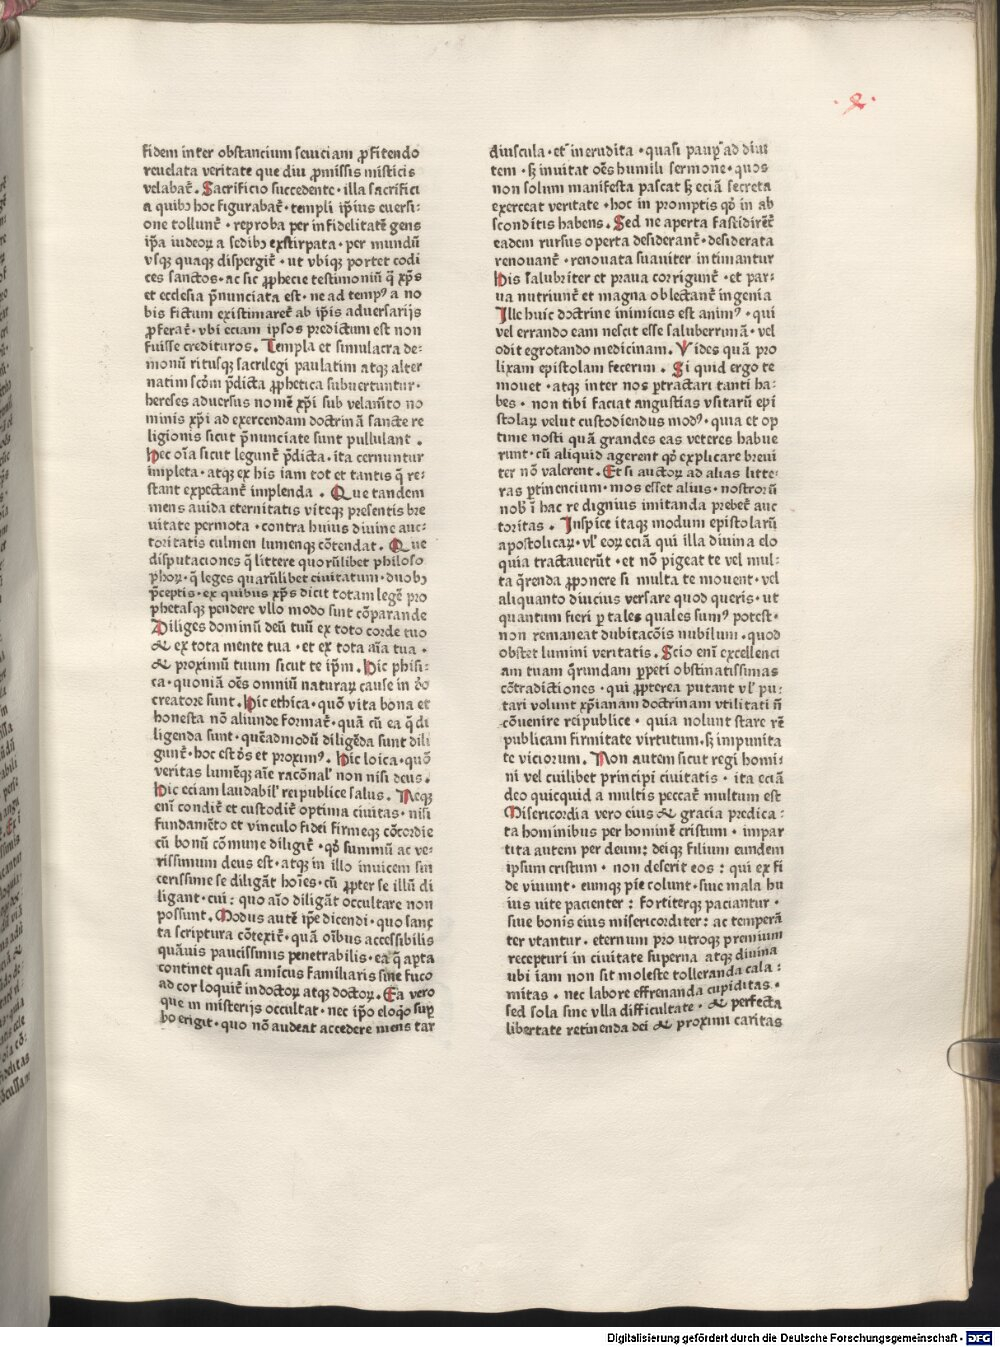 fidem inter obstancium seuiciam ꝓfitendo
reuelata veritate que diu ꝓmissis misticis
velabat᷑. Sacrificio succedente · illa sacrifici
a quibꝫ hoc figurabat᷑ · templi ip̅ius euersi⸗
one tollunt᷑ · reproba per infidelitatē gens
ip̅a iudeoꝝ a sedibꝫ exstirpata · per mundū
vsqꝫ quaqꝫ dispergit᷑ · ut vbiqꝫ portet codi
ces sanctos · ac sic ꝓphecie testimoniū q̄ xp̅s
et ecclesia p̄nunciata est · ne ad tempꝰ a no
bis fictum existimaret᷑ ab ip̅is aduersarijs
ꝓferat᷑ · vbi eciam ipsos predictum est non
fuisse credituros. Templa et simulacra de⸗
monū ritusqꝫ sacrilegi paulatim atqꝫ alter
natim scd̅m p̄dicta ꝓphetica subuertuntur ·
hereses aduersus nomē xp̅i sub velam̅to no
minis xp̅i ad exercendam doctrinā sancte re
ligionis sicut p̄nunciate sunt pullulant .
Hec oīa sicut legunt᷑ p̄dicta · ita cernuntur
impleta · atqꝫ ex his iam tot et tantis q̄ re⸗
stant expectant᷑ implenda . Que tandem
mens auida eternitatis viteqꝫ presentis bre
uitate permota · contra huius diuine auc⸗
toritatis culmen lumenqꝫ cōtendat. Que
disputaciones q̄ littere quorūlibet philoso
phoꝝ · q̄ leges quarūlibet ciuitatum · duobꝫ
p̄ceptis · ex quibus xp̅s dicit totam legē pro
phetasqꝫ pendere vllo modo sunt cōparande
Diliges dominū deū tuū ex toto corde tuo
& ex tota mente tua · et ex tota aīa tua ·
& proximū tuum sicut te ip̅m. Hic phisi⸗
ca · quoniā oēs omniū naturaꝝ cause in do̅
creatore sunt. Hic ethica · quō vita bona et
honesta nō aliunde format᷑ · quā cū ea q̄ di
ligenda sunt · quēadmodū diligēda sunt dili
gunt᷑ · hoc est do̅s et proximꝰ. Hic loica · quō
veritas lumēqꝫ aīe racōnal' non nisi deus.
Hic eciam laudabil' reipublice salus. Neqꝫ
enī condit᷑ et custodit᷑ optima ciuitas · nisi
fundamēto et vinculo fidei firmeqꝫ cōcordie
cū bonū cōmune diligit᷑ · qd̅ summū ac ve⸗
rissimum deus est · atqꝫ in illo inuicem sin
cerissime se diligāt hoīes · cū ꝓpter se illū di
ligant · cui : quo aīo diligāt occultare non
possunt. Modus autē ip̅e dicendi · quo sanc
ta scriptura cōtexit᷑ · quā oībus accessibilis
quāuis paucissimis penetrabilis · ea q̄ apta
continet quasi amicus familiaris sine fuco
ad cor loquit᷑ indoctoꝝ atqꝫ doctoꝝ. Ea vero
que in misterijs occultat · nec ip̅o eloqͦo suꝑ
bo erigit · quo nō audeat accedere mens tar
diuscula · et inerudita · quasi pauꝑ ad diui
tem · sꝫ inuitat oēs humili sermone · quos
non solum manifesta pascat sꝫ eciā secreta
exerceat veritate · hoc in promptis qd̅ in ab
sconditis habens. Sed ne aperta fastidirēt᷑
eadem rursus operta desiderant᷑ · desiderata
renouant᷑ · renouata suauiter intimantur
His salubriter et praua corrigunt᷑ · et par⸗
ua nutriunt᷑ et magna oblectant᷑ ingenia
Ille huic doctrine inimicus est animꝰ · qui
vel errando eam nescit esse saluberrimā · vel
odit egrotando medicinam. Vides quā pro
lixam epistolam fecerim . Si quid ergo te
mouet · atqꝫ inter nos ꝑtractari tanti ha⸗
bes · non tibi faciat angustias vsitarū epi
stolaꝝ velut custodiendus modꝰ · quia et op
time nosti quā grandes eas veteres habue
runt · cū aliquid agerent qd̅ explicare breui
ter nō valerent. Et si auctoꝝ ad alias litte⸗
ras ꝑtinencium · mos esset alius · nostrorū
nob̅ i hac re dignius imitanda prebet᷑ auc
toritas . Inspice itaqꝫ modum epistolarū
apostolicaꝝ · vl' eoꝝ eciā qui illa diuina elo
quia tractauerūt · et nō pigeat te vel mul⸗
ta q̄renda ꝓponere si multa te mouent · vel
aliquanto diucius versare quod queris · ut
quantum fieri ꝑ tales quales sumꝰ potest ·
non remaneat dubitacōis nubilum · quod
obstet lumini veritatis. Scio enī excellenci
am tuam q̄rundam ꝑpeti obstinatissimas
cōtradictiones · qui ꝓpterea putant vl' pu⸗
tari volunt xp̅ianam doctrinam vtilitati n̄
cōuenire reipublice · quia nolunt stare rē
publicam firmitate virtutum · sꝫ impunita
te viciorum. Non autem sicut regi homi⸗
ni vel cuilibet principi ciuitatis · ita eciā
deo quicquid a multis peccat᷑ multum est
Misericordia vero eius & gracia predica⸗
ta hominibus per hominē cristum · impar
tita autem per deum : deiqꝫ filium eundem
ipsum cristum · non deserit eos : qui ex fi
de viuunt · eumqꝫ pie colunt · siue mala hu
ius uite pacienter : fortiterqꝫ paciantur ·
siue bonis eius misericorditer : ac temperā
ter vtantur · eternum pro utroqꝫ premium
recepturi in ciuitate superna atqꝫ diuina
ubi iam non sit moleste tolleranda cala⸗
mitas · nec labore effrenanda cupiditas ·
sed sola sine vlla difficultate · & perfecta
libertate retinenda dei & proximi caritas
Digitalisierung gefördert durch die Deutsche Forschungsgemeinschaft - DFG